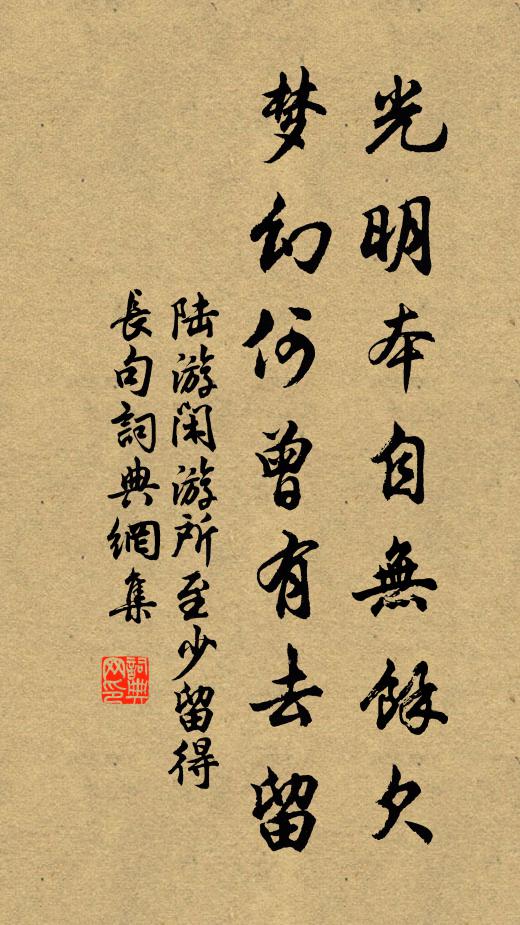 光明本自無餘欠
梦幻何曾有去留
陆游閑游所至少留得
長句詞典網集
詞典网印